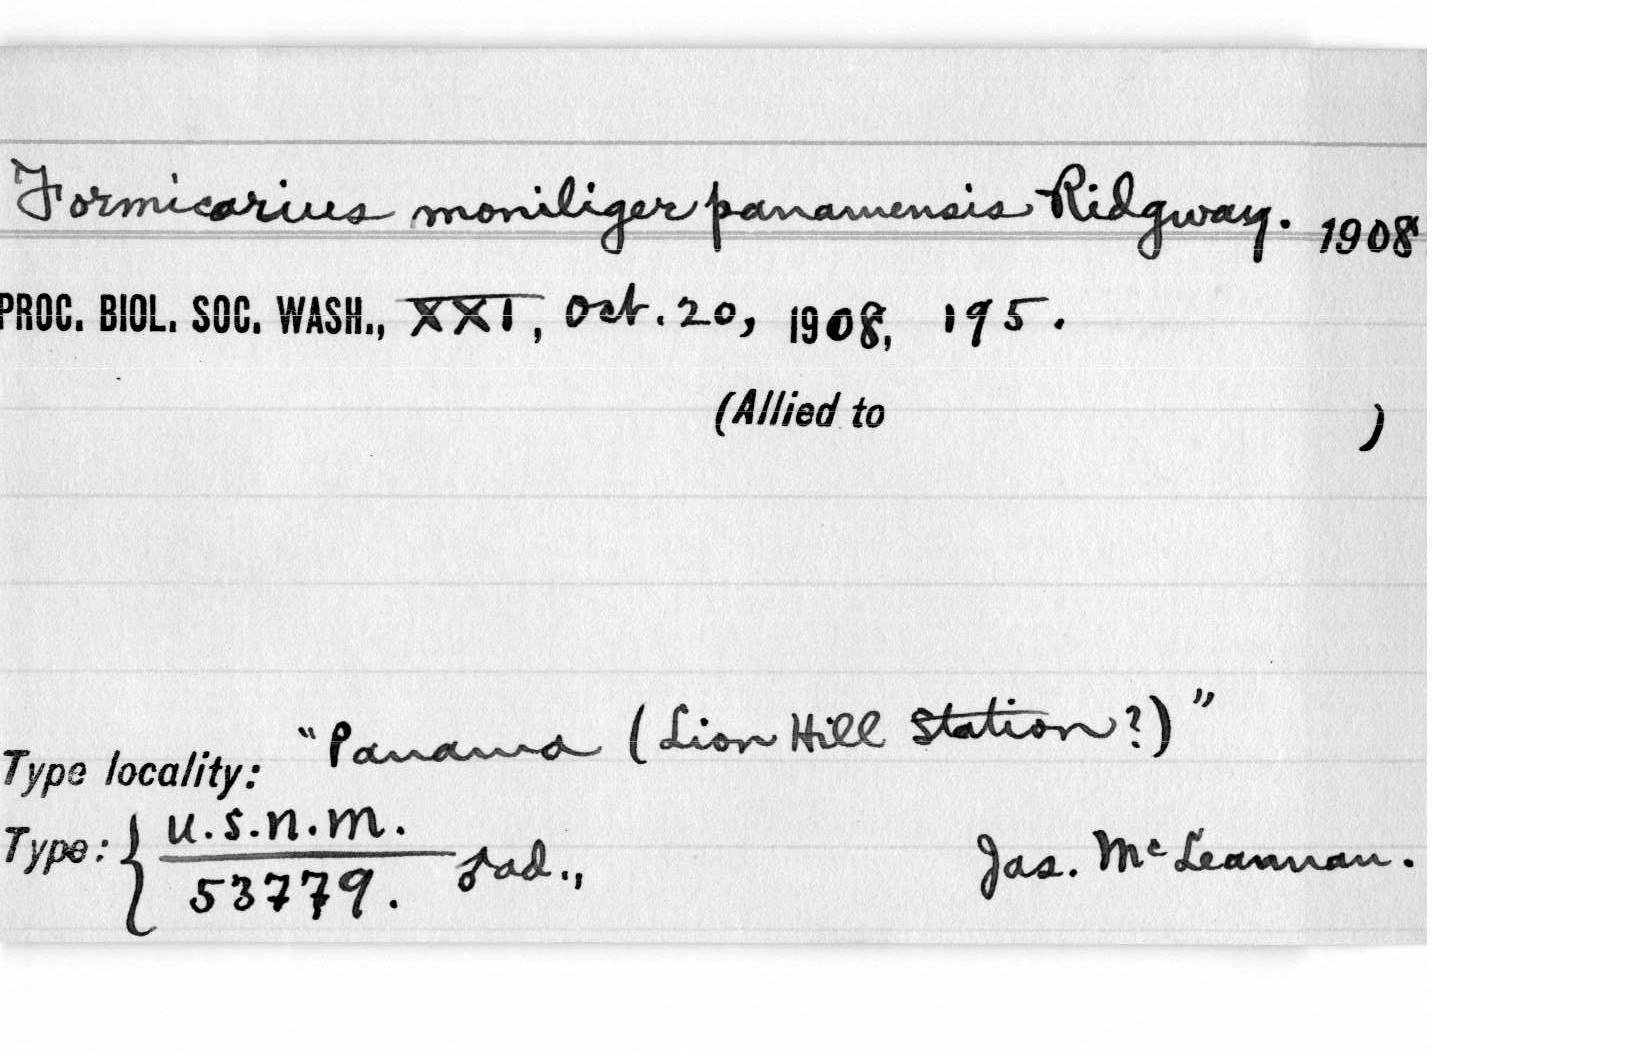 Formicarius moniliger panamensis Ridgway. 1908
PROC. BIOL. SOC. WASH., XXI, Oct. 20, 1908, 195.
(Allied to )
Type locality: "Panama (Lion Hill Station?)"
Type: { U.S.N.M. 
53779. ♂ ad., Jas. McLeannan.